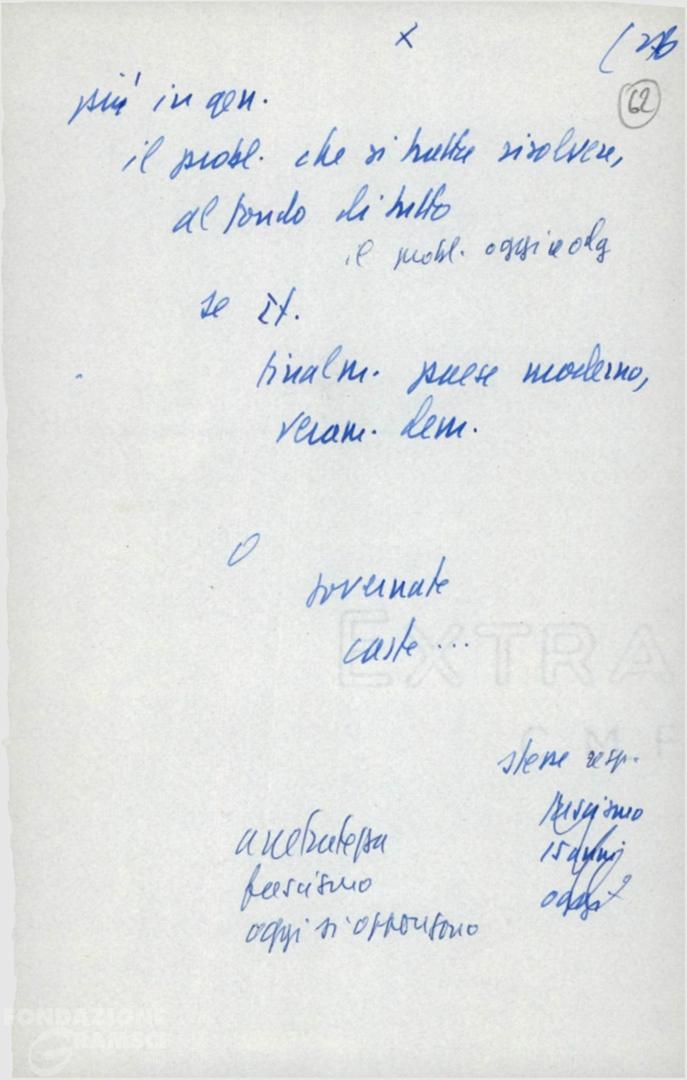 x
(27b
62
più in gen.
il probl. che si tratta risolvere,
al fondo di tutto
il probl. oggi
se It.
finalm. paese moderno,
veram. dem.
o
governate
caste ...
stesse resp.
fascismo
15 anni
oggi
arretratezza
fascismo
oggi si oppongono
EXTRA
FONDAZIONE
GRAMSCI